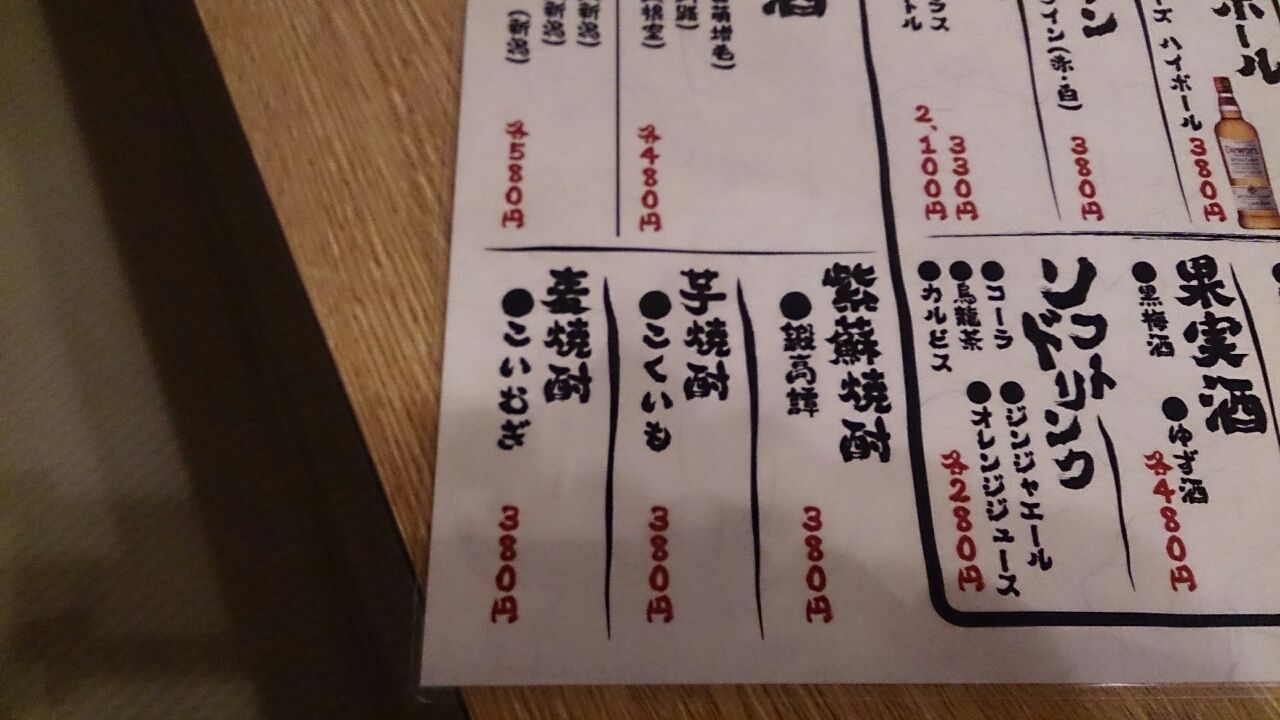 ボール
ズ ハイボール
380円
Dewar's
ン
イン(赤・白)
380円
ラス
330円
トル
2,100円
酒
国稀増毛)
各480円
(新潟)
(新潟)
(新潟)
各580円
果実酒
●黒梅酒
●ゆず酒
各480円
ソフトドリンク
●コーラ
●ジンジャエール
●烏龍茶
●オレンジジュース
●カルピス
各280円
紫蘇焼酎
●鍛高譚
380円
芋焼酎
●こくいも
380円
麦焼酎
●こいむぎ
380円